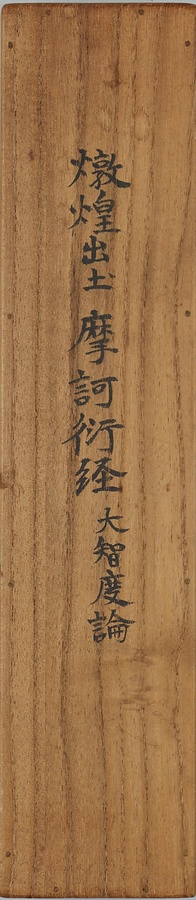 燉煌出土 摩訶衍経 大智度論